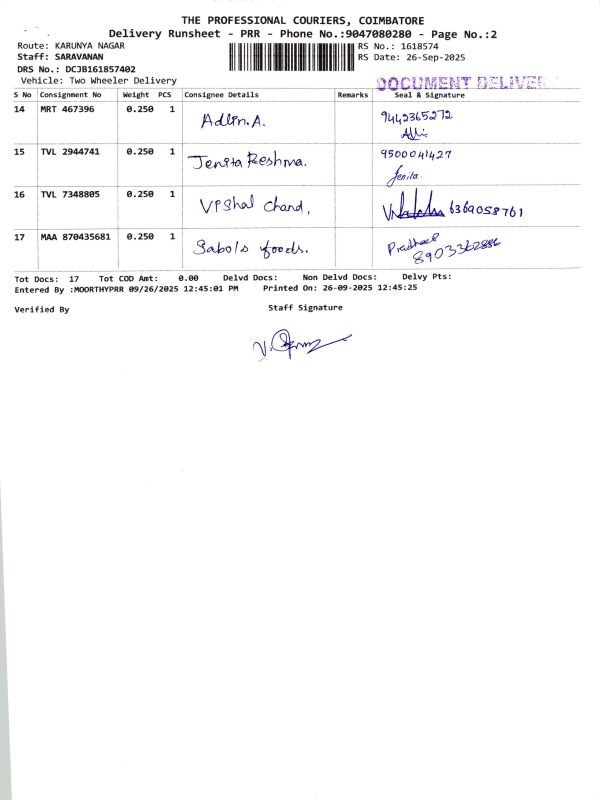 THE PROFESSIONAL COURIERS, COIMBATORE
Delivery Runsheet - PRR - Phone No.:9047080280 - Page No.:2
Route: KARUNYA NAGAR RS No.: 1618574
Staff: SARAVANAN RS Date: 26-Sep-2025
DRS No.: DCJB161857402
Vehicle: Two Wheeler Delivery DOCUMENT DELIVER
S No Consignment No Weight PCS Consignee Details Remarks Seal & Signature
14 MRT 467396 0.250 1 Adlin.A. 9442365272
15 TVL 2944741 0.250 1 Jenita Reshma. 9500041427
Jenita.
16 TVL 7348805 0.250 1 VPShal Chand, 6369058761
17 MAA 870435681 0.250 1 Sabols foods. Pradheep
8903362886
Tot Docs: 17 Tot COD Amt: 0.00 Delvd Docs: Non Delvd Docs: Delvy Pts:
Entered By :MOORTHYPRR 09/26/2025 12:45:01 PM Printed On: 26-09-2025 12:45:25
Verified By Staff Signature